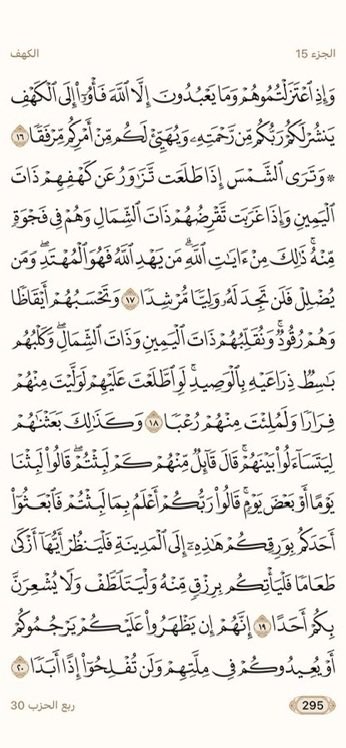 الكهف الجزء 15
وَإِذِ ٱعْتَزَلْتُمُوهُمْ وَمَا يَعْبُدُونَ إِلَّا ٱللَّهَ فَأْوُۥٓا۟ إِلَى ٱلْكَهْفِ
يَنشُرْ لَكُمْ رَبُّكُم مِّن رَّحْمَتِهِۦ وَيُهَيِّئْ لَكُم مِّنْ أَمْرِكُم مِّرْفَقًا ١٦
۞ وَتَرَى ٱلشَّمْسَ إِذَا طَلَعَت تَّزَٰوَرُ عَن كَهْفِهِمْ ذَاتَ
ٱلْيَمِينِ وَإِذَا غَرَبَت تَّقْرِضُهُمْ ذَاتَ ٱلشِّمَالِ وَهُمْ فِى فَجْوَةٍ
مِّنْهُ ۚ ذَٰلِكَ مِنْ ءَايَٰتِ ٱللَّهِ ۗ مَن يَهْدِ ٱللَّهُ فَهُوَ ٱلْمُهْتَدِ ۖ وَمَن
يُضْلِلْ فَلَن تَجِدَ لَهُۥ وَلِيًّا مُّرْشِدًا ١٧ وَتَحْسَبُهُمْ أَيْقَاظًا
وَهُمْ رُقُودٌ ۚ وَنُقَلِّبُهُمْ ذَاتَ ٱلْيَمِينِ وَذَاتَ ٱلشِّمَالِ ۖ وَكَلْبُهُم
بَٰسِطٌ ذِرَاعَيْهِ بِٱلْوَصِيدِ ۚ لَوِ ٱطَّلَعْتَ عَلَيْهِمْ لَوَلَّيْتَ مِنْهُمْ
فِرَارًا وَلَمُلِئْتَ مِنْهُمْ رُعْبًا ١٨ وَكَذَٰلِكَ بَعَثْنَٰهُمْ
لِيَتَسَآءَلُوا۟ بَيْنَهُمْ ۚ قَالَ قَآئِلٌ مِّنْهُمْ كَمْ لَبِثْتُمْ ۖ قَالُوا۟ لَبِثْنَا
يَوْمًا أَوْ بَعْضَ يَوْمٍ ۚ قَالُوا۟ رَبُّكُمْ أَعْلَمُ بِمَا لَبِثْتُمْ فَٱبْعَثُوٓا۟
أَحَدَكُم بِوَرِقِكُمْ هَٰذِهِۦٓ إِلَى ٱلْمَدِينَةِ فَلْيَنظُرْ أَيُّهَآ أَزْكَىٰ
طَعَامًا فَلْيَأْتِكُم بِرِزْقٍ مِّنْهُ وَلْيَتَلَطَّفْ وَلَا يُشْعِرَنَّ
بِكُمْ أَحَدًا ١٩ إِنَّهُمْ إِن يَظْهَرُوا۟ عَلَيْكُمْ يَرْجُمُوكُمْ
أَوْ يُعِيدُوكُمْ فِى مِلَّتِهِمْ وَلَن تُفْلِحُوٓا۟ إِذًا أَبَدًا ٢٠
ربع الحزب 30 295